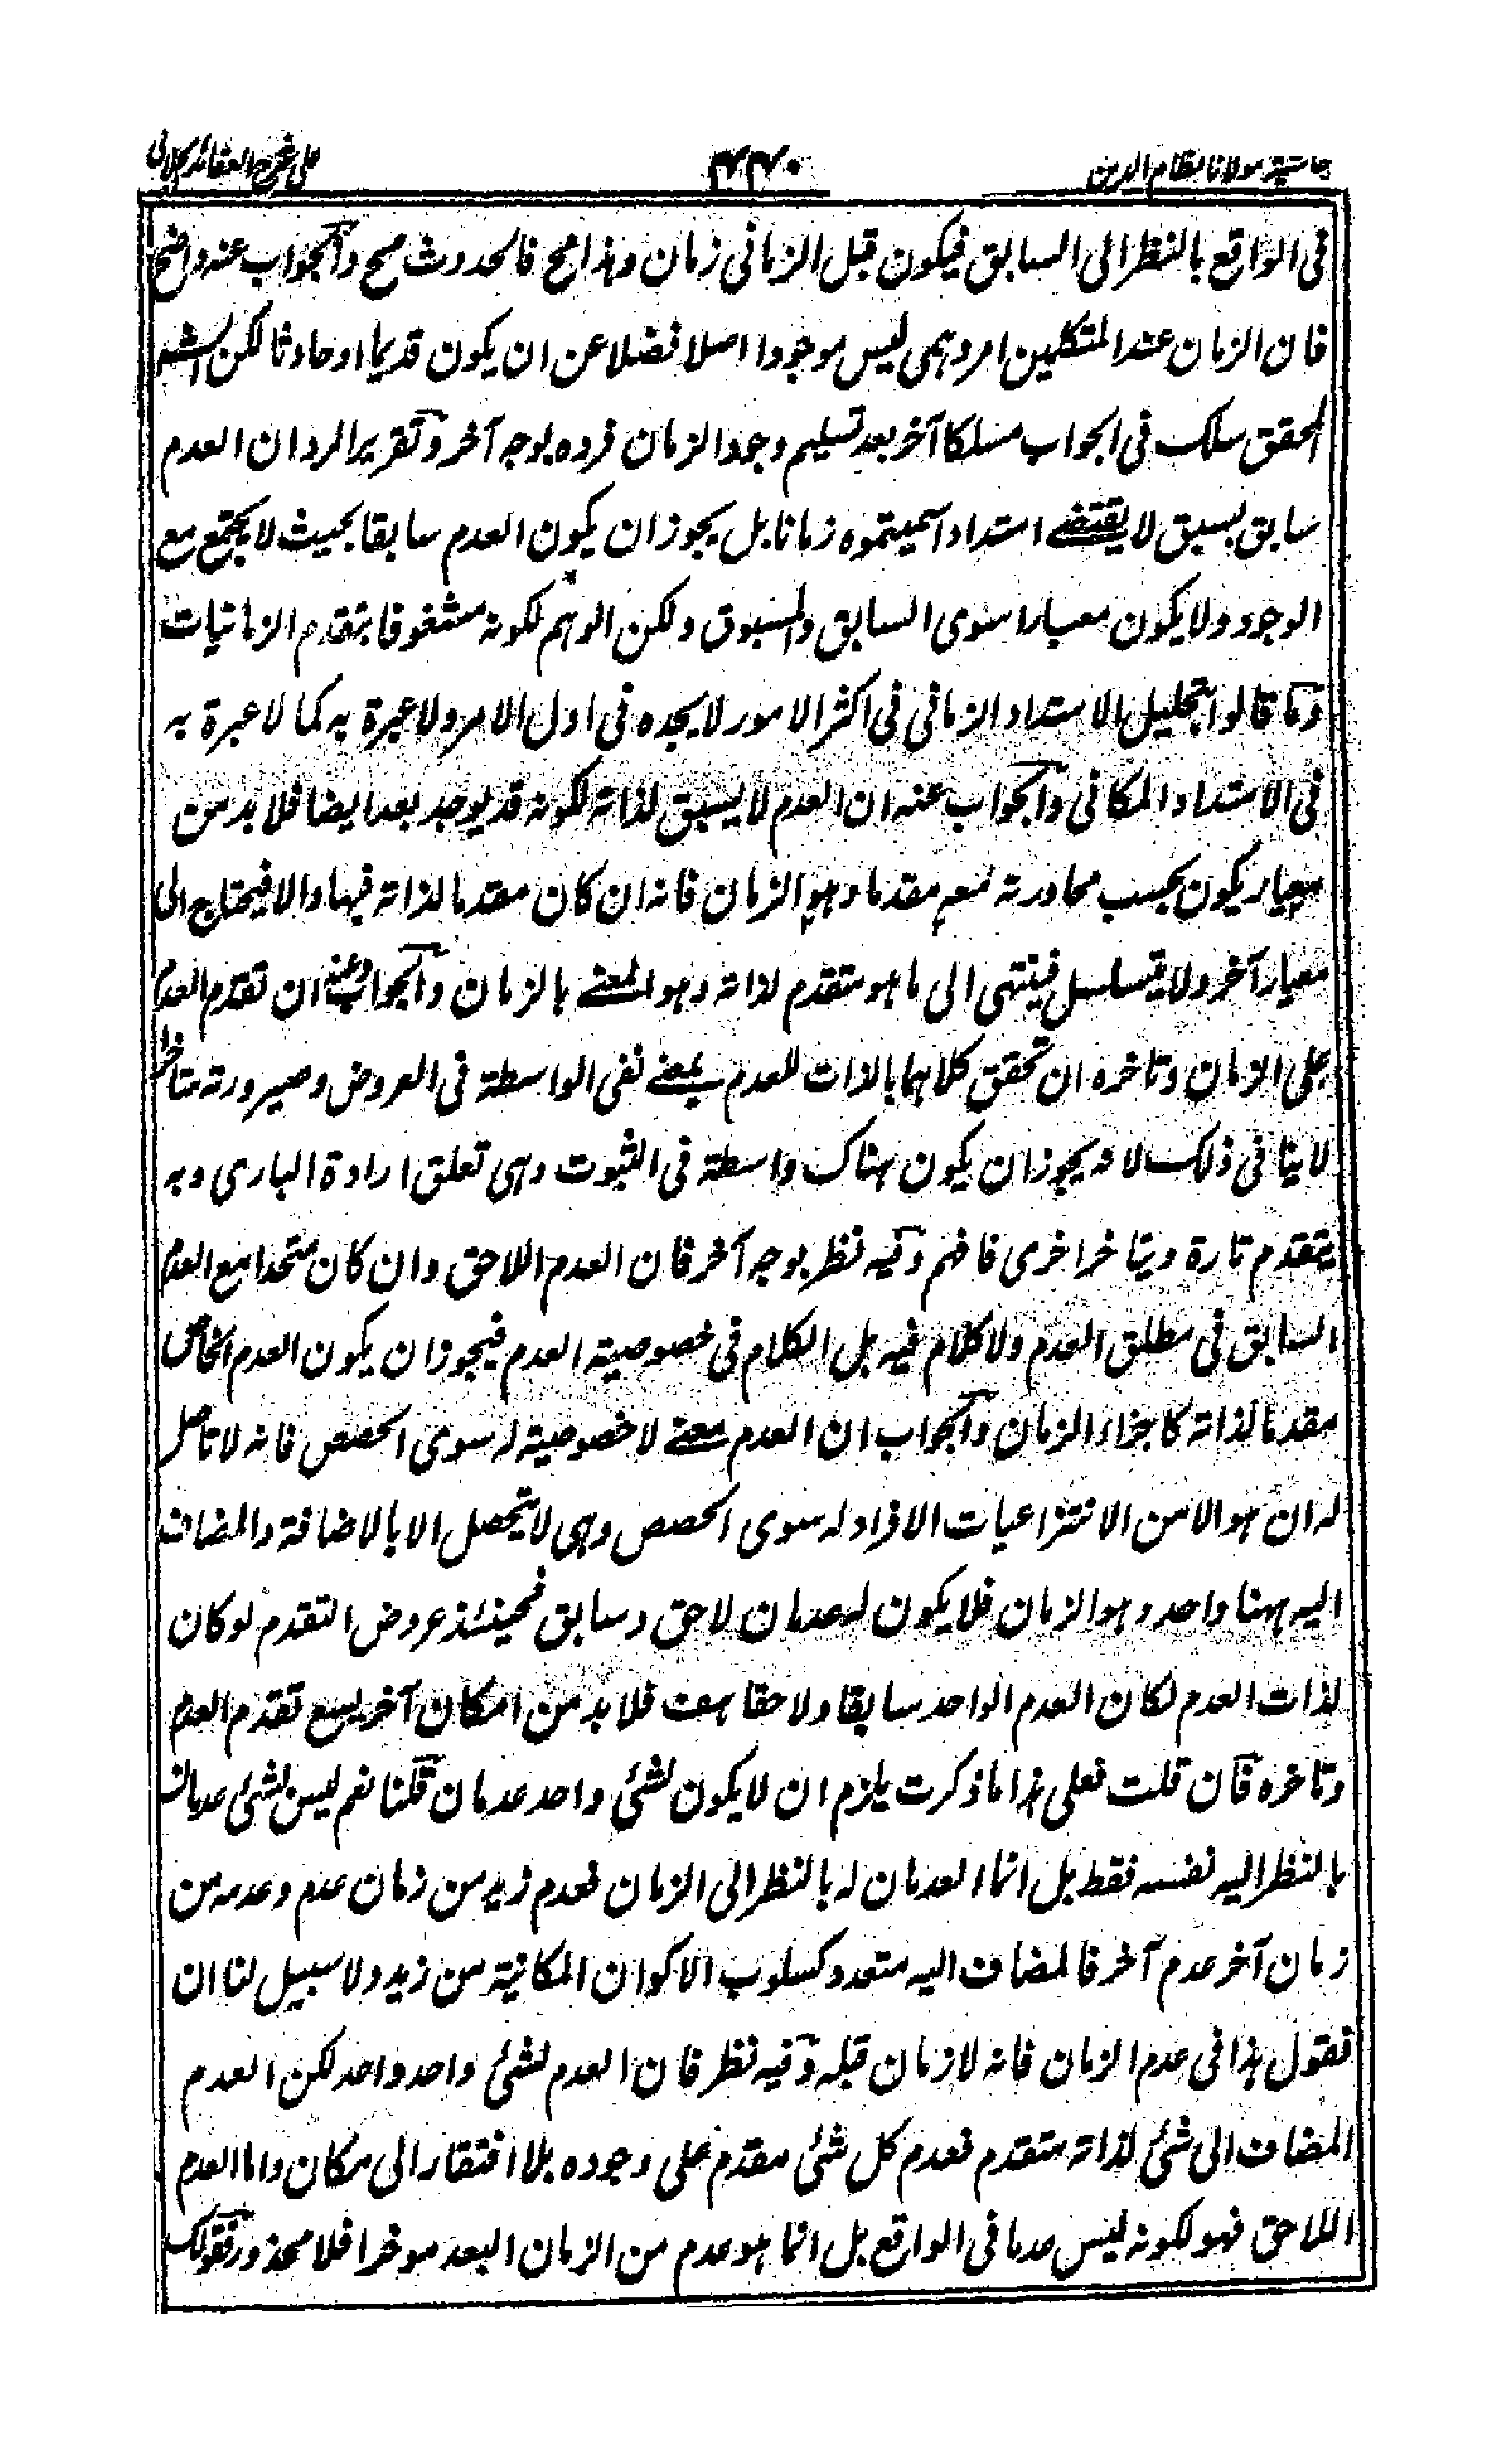 حاشية مولانا نظام الدين
٤٤٠
على شرح العقائد الجلالي
في الواقع بالنظر الى السابق فيكون قبل الزماني زمان وهذا مح فالحدوث مح والجواب عنه واضح
فان الزمان عند المتكلمين امر وهمي ليس موجودا اصلا فضلا عن ان يكون قديما او حادثا لكن الشم
المحقق سلك في الجواب مسلكا آخر بعد تسليم وجود الزمان فرده بوجه آخر وتقرير الرد ان العدم
سابق بسبق لا يقتضے امتدادا سميتموه زمانا بل يجوز ان يكون العدم سابقا بحيث لا يجتمع مع
الوجود ولا يكون معيارا سوى السابق والمسبوق ولكن الوهم لكونه مشغوفا بتقدم الزمانيات
وما قالوا بتحليل الامتداد الزماني في اكثر الامور لا يجده في اول الامر ولا عبرة به كما لا عبرة به
في الامتداد المكاني والجواب عنه ان العدم لا يسبق لذاته لكونه قد يوجد بعد ايضا فلا بد من
معيار يكون بحسب محاورته مقدما وهو الزمان فانه ان كان مقدما لذاته فبها والا فيحتاج الى
معيار آخر ولا يتسلسل فينتهى الى ما هو متقدم لذاته وهو المعنے بالزمان والجواب عنه ان تقدم العدم
على الزمان وتاخره ان تحقق كلاهما بالذات للعدم بمعنے نفى الواسطة في العروض وصيرورته متاخرا
لا ينافي ذلك لانه يجوز ان يكون هناك واسطة في الثبوت وهي تعلق ارادة الباري وبه
يتقدم تارة ويتاخر اخرى فافهم وفيه نظر بوجه آخر فان العدم اللاحق وان كان متحدا مع العدم
السابق في مطلق العدم ولا كلام فيه بل الكلام في خصوصية العدم فيجوز ان يكون العدم الخاص
مقدما لذاته كاجزاء الزمان والجواب ان العدم معنے لا خصوصية له سوى الحصص فانه لا تاصل
له ان هو الا من الانتزاعيات لا افراد له سوى الحصص وهي لا يتحصل الا بالاضافة والمضاف
اليه ههنا واحد وهو الزمان فلا يكون له عدمان لاحق وسابق فحينئذ عروض التقدم لو كان
لذات العدم لكان العدم الواحد سابقا ولاحقا هف فلا بد من امكان آخر يسع تقدم العدم
وتاخره فان قلت فعلى هذا ما ذكرت يلزم ان لا يكون لشئ واحد عدمان قلنا نعم ليس لشئ عدمان
بالنظر اليه نفسه فقط بل انما العدمان له بالنظر الى الزمان فعدم زيد من زمان عدم وعدمه من
زمان آخر عدم آخر فالمضاف اليه متعدد كسلوب الاكوان المكانية من زيد ولا سبيل لنا ان
نقول هذا في عدم الزمان فانه لا زمان قبله وفيه نظر فان العدم لشئ واحد واحد لكن العدم
المضاف الى شئ لذاته متقدم فعدم كل شئ مقدم على وجوده بلا افتقار الى مكان واما العدم
اللاحق فهو لكونه ليس عدما في الواقع بل انما هو عدم من الزمان البعد موخرا فلا محذور فقولك